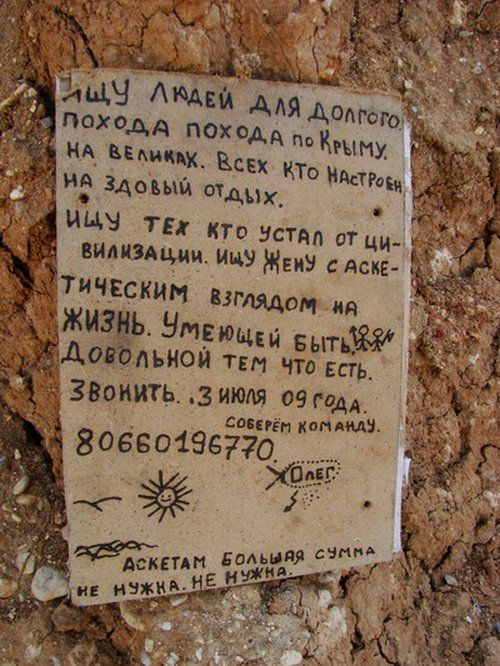 ИЩУ ЛЮДЕЙ ДЛЯ ДОЛГОГО
ПОХОДА ПОХОДА ПО КРЫМУ.
НА ВЕЛИКАХ. ВСЕХ КТО НАСТРОЕН
НА ЗДОВЫЙ ОТДЫХ.
ИЩУ ТЕХ КТО УСТАЛ ОТ ЦИ-
ВИЛИЗАЦИИ. ИЩУ ЖЕНУ С АСКЕ-
ТИЧЕСКИМ ВЗГЛЯДОМ НА
ЖИЗНЬ. УМЕЮЩЕЙ БЫТЬ
ДОВОЛЬНОЙ ТЕМ ЧТО ЕСТЬ.
ЗВОНИТЬ. .3 ИЮЛЯ 09 ГОДА.
СОБЕРЁМ КОМАНДУ.
80660196770.
ОЛЕГ
АСКЕТАМ БОЛЬШАЯ СУММА
НЕ НУЖНА. НЕ НУЖНА.